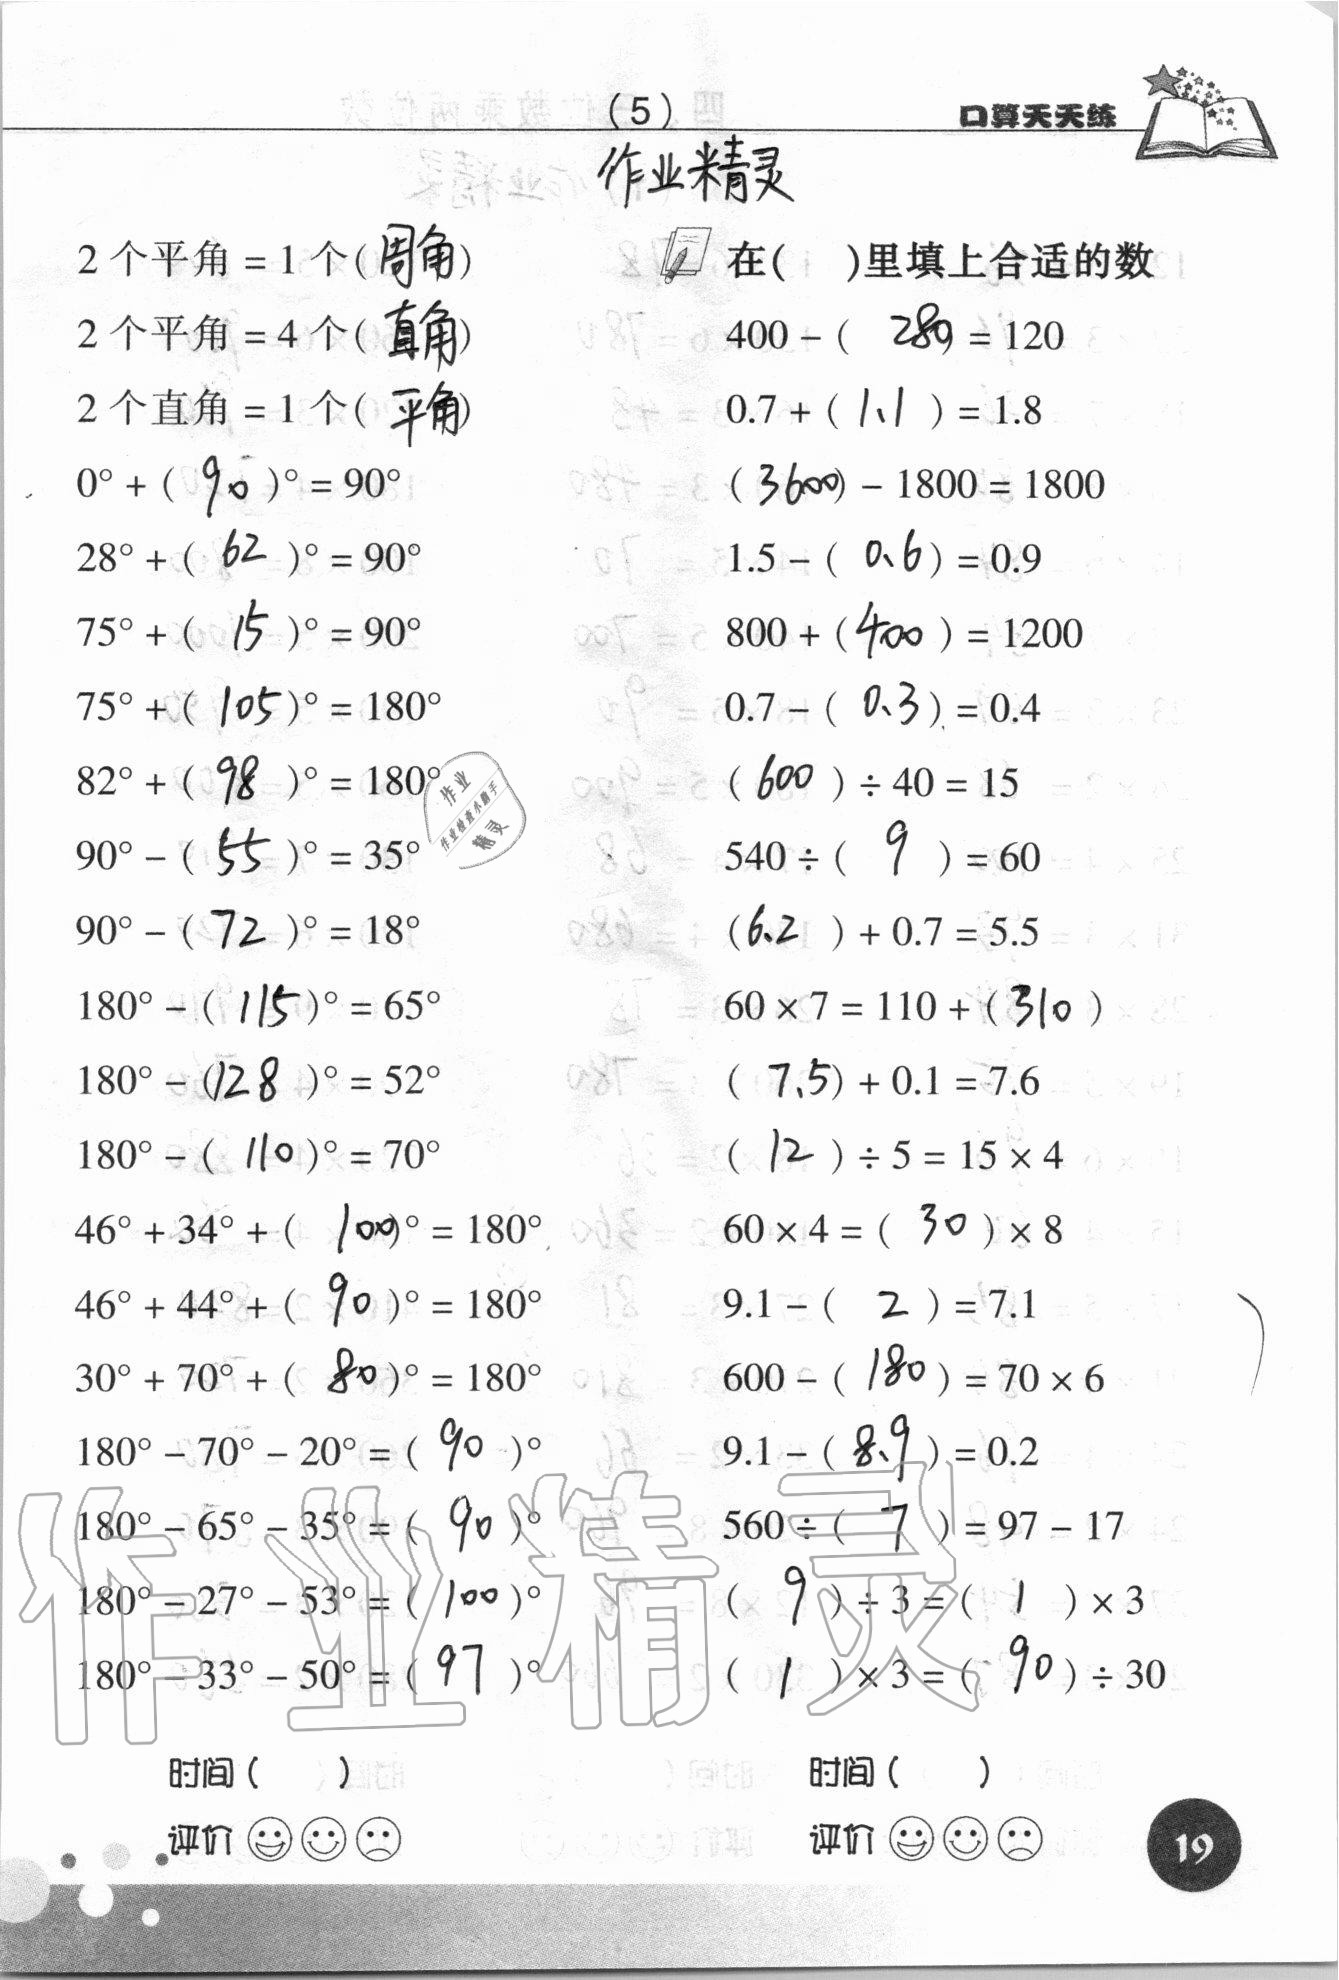 (5)
口算天天练
作业精灵
2个平角=1个(周角)
2个平角=4个(直角)
2个直角=1个(平角)
0°+(90)°=90°
28°+(62)°=90°
75°+(15)°=90°
75°+(105)°=180°
82°+(98)°=180°
90°-(55)°=35°
90°-(72)°=18°
180°-(115)°=65°
180°-(128)°=52°
180°-(110)°=70°
46°+34°+(100)°=180°
46°+44°+(90)°=180°
30°+70°+(80)°=180°
180°-70°-20°=(90)°
180°-65°-35°=(90)°
180°-27°-53°=(100)°
180°-33°-50°=(97)°
时间( )
评价
在( )里填上合适的数
400-(280)=120
0.7+(1.1)=1.8
(3600)-1800=1800
1.5-(0.6)=0.9
800+(400)=1200
0.7-(0.3)=0.4
(600)÷40=15
540÷(9)=60
(6.2)+0.7=5.5
60×7=110+(310)
(7.5)+0.1=7.6
(12)÷5=15×4
60×4=(30)×8
9.1-(2)=7.1
600-(180)=70×6
9.1-(8.9)=0.2
560÷(7)=97-17
(9)÷3=(1)×3
(1)×3=(90)÷30
时间( )
评价
19
作业
作业检查小助手
精灵
作业精灵